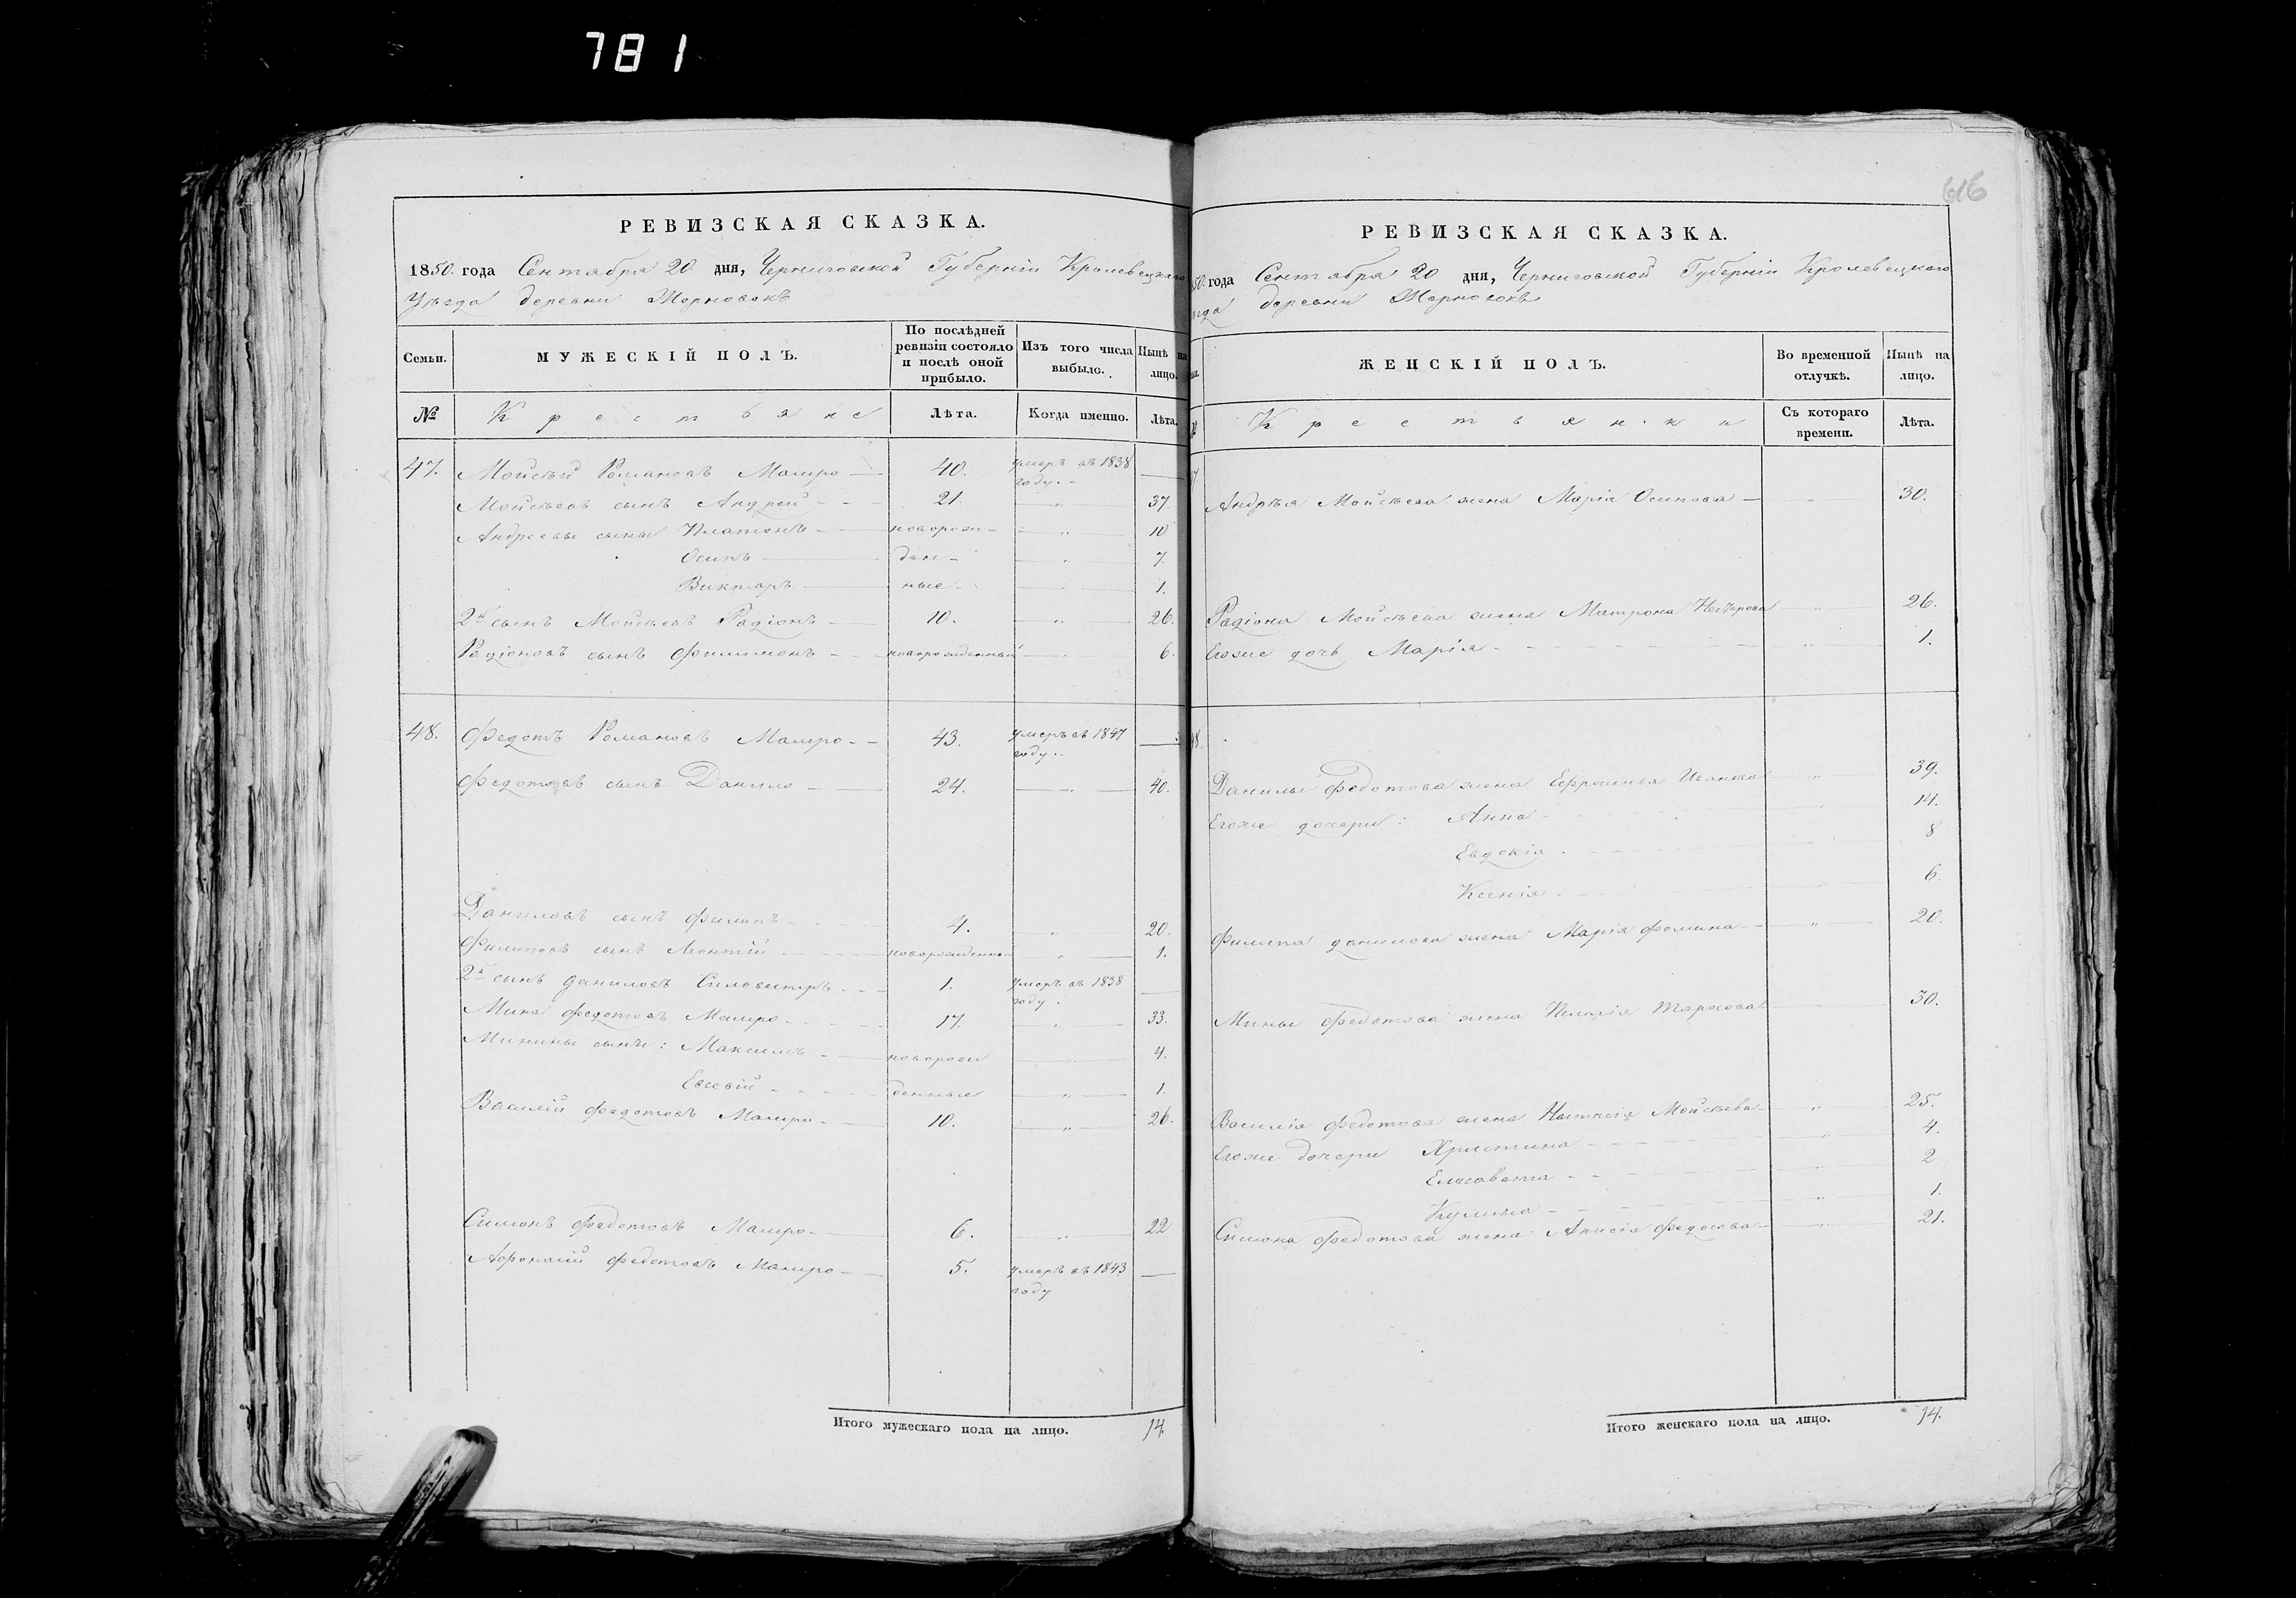 781
616
РЕВИЗСКАЯ СКАЗКА.
1850 года Сентября 20 дня, Черниговской Губерніи Кролевецкаго
Уѣзда деревни Жорновокъ
Семьи. МУЖЕСКІЙ ПОЛЪ. По послѣдней ревизіи состояло и послѣ оной прибыло. Изъ того числа выбыло. Нынѣ на лицо.
№ Крестьяне Лѣта. Когда именно. Лѣта.
47. Мойсѣй Романовъ Мамро 40. умеръ въ 1838 году.
Мойсѣевъ сынъ Андрей 21. 37.
Андреевы сыны Платонъ новорож- 10
Осипъ ден- 7.
Викторъ ные 1.
2й сынъ Мойсѣевъ Радіонъ 10. 26.
Радіоновъ сынъ Филимонъ новорожденный 6.
48. Федотъ Романовъ Мамро 43. умеръ въ 1847 году.
Федотовъ сынъ Данило 24. 40.
Даниловъ сынъ Филипъ 4. 20.
Филиповъ сынъ Леонтій новорожденны 1.
2й сынъ Даниловъ Сильвестръ 1. умеръ въ 1838 году.
Мина Федотовъ Мамро 17. 33.
Минины сыны: Максимъ новорож 4.
Евсевій денные 1.
Василій Федотовъ Мамро 10. 26.
Симонъ Федотовъ Мамро 6. 22
Афонасій Федотовъ Мамро 5. умеръ въ 1843 году
Итого мужескаго пола на лицо. 14.
РЕВИЗСКАЯ СКАЗКА.
50 года Сентября 20 дня, Черниговской Губерніи Кролевецкаго
деревни Жорновокъ
ЖЕНСКІЙ ПОЛЪ. Во временной отлучкѣ. Нынѣ на лицо.
Крестьянки Съ котораго времени. Лѣта.
Андрѣя Мойсѣева жена Марія Осипова 30.
Радіона Мойсѣева жена Матрона 26.
Егоже дочь Марія 1.
Данилы Федотова жена Ефросинья Иванова 39.
Егоже дочери: Анна 14.
Евдокія 8
Ксенія 6.
Филипа Данилова жена Марія Фомина 20.
Мины Федотова жена Пелагія Тарасова 30.
Василія Федотова жена Настасія Мойсѣева 25.
Егоже дочери Христина 4.
Елисавета 2
Кулина 1.
Симона Федотова жена Анисія Федосова 21.
Итого женскаго пола на лицо. 14.